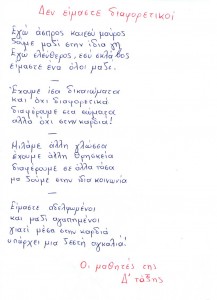 Δεν είμαστε διαφορετικοί
Εγώ άσπρος και εσύ μαύρος
ζούμε μαζί στην ίδια γη
Εγώ ελεύθερος, εσύ σκλάβος
είμαστε ένα όλοι μαζί.
Έχουμε ίσα δικαιώματα
και όχι διαφορετικά
διαφέρουμε στα σώματα
αλλά όχι στην καρδιά!
Μιλάμε άλλη γλώσσα
έχουμε άλλη θρησκεία
διαφέρουμε σε άλλα τόσα
μα ζούμε στην ίδια κοινωνία
Είμαστε αδελφωμένοι
και μαζί αγαπημένοι
γιατί μέσα στην καρδιά
υπάρχει μια ζεστή αγκαλιά!
Οι μαθητές της
Δ' τάξης